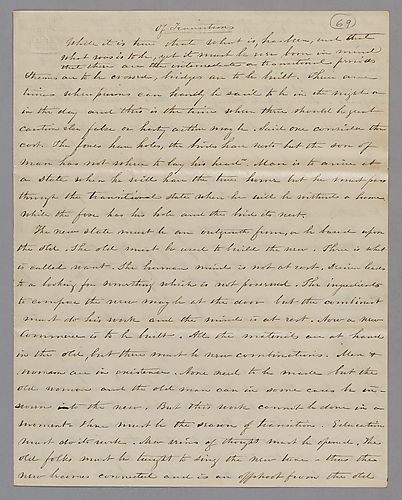 Of Transitions
(69)
While it is true that what is, has been, and that
what was is to be, yet it must be ever born in mind
that there are the intermediate or transitional periods
Streams are to be crossed, bridges are to be built. There are
times when persons can hardly be said to be in the night or
in the day and this is the time when there should be great
caution else false or hasty action may be. Said one consider the
cost. The foxes have holes, the birds have nests but the son of
man has not where to lay his head. Man is to arrive at
a state when he will have the true home but he must pass
through the transitional state when he will be without a home
while the fox has his hole and the bird its nest.
The new state must be an outgrowth from, or be based upon
the old. The old must be used to build the new. There is what
is called want. The human mind is not at rest. Desire leads
to a looking for something which is not possessed. The ingredients
to compose the new may be at the door but the combinist
must do his work and the mind is at rest. Now a new
Commerce is to be built. All the materials are at hand
in the old, but there must be new combinations. Man &
woman are in existence. None need to be made but the
old woman and the old man can in some cases be in-
to the new. But this work cannot be done in a
moment. There must be the season of transition. Education
must do its work. New series of thought must be opened. The
old folks must be taught to sing the new tune - thus the
new becomes connected and is an offshoot from the old